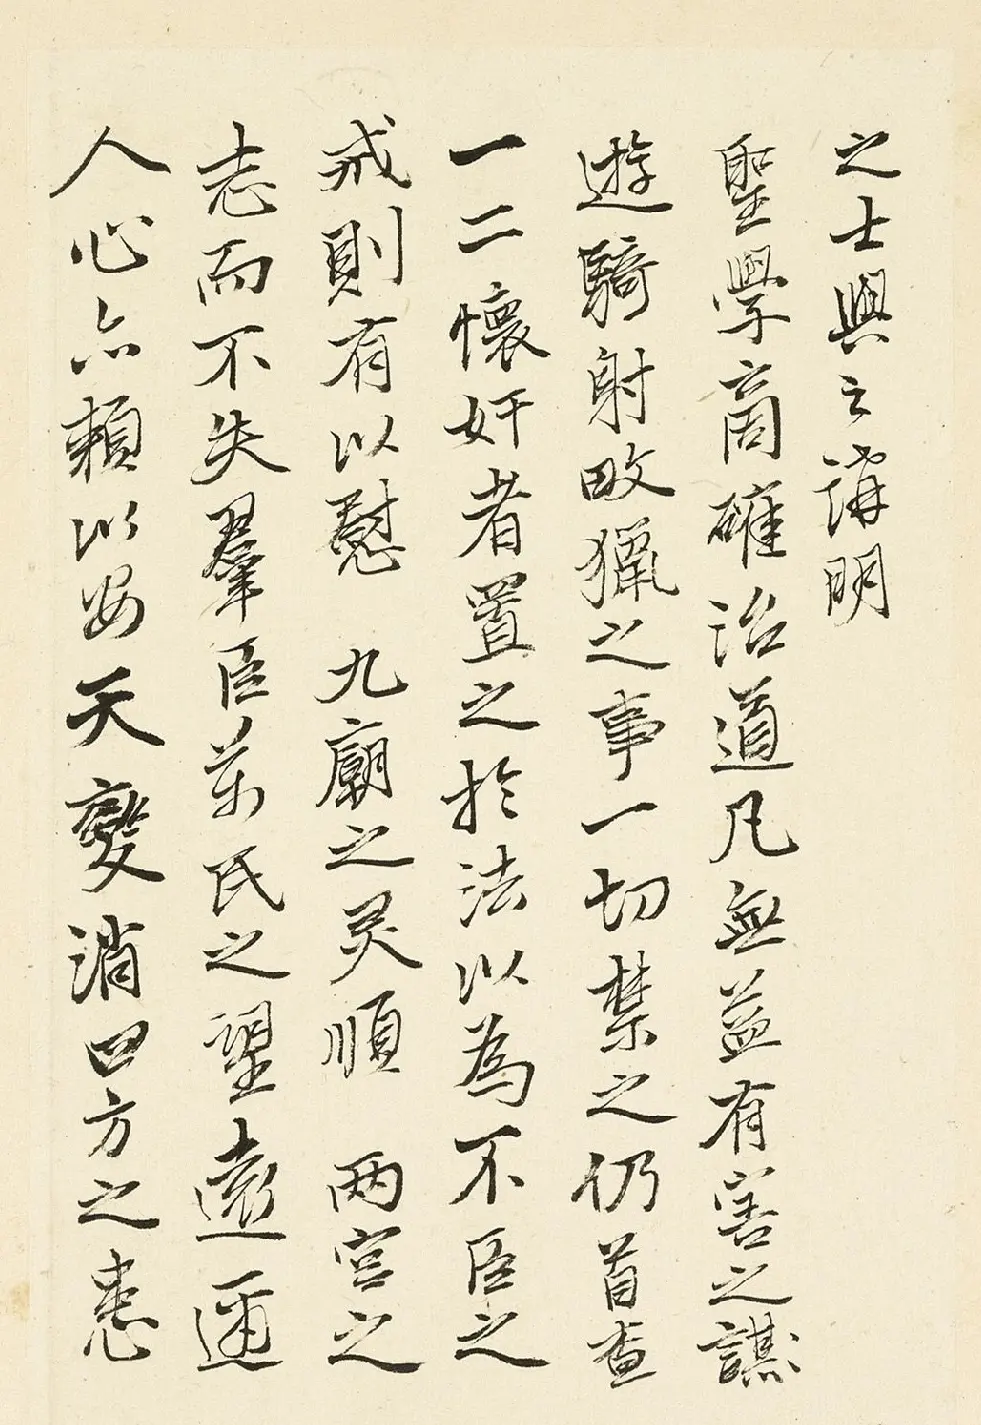 之士與之講明
聖學商確治道凡無益有害之謀
遊騎射畋獵之事一切禁之仍首查
一二懷奸者置之於法以為不臣之
戒則有以慰 九廟之灵順 两宮之
志而不失羣臣萬民之望遠邇
人心亦賴以安天變消四方之患